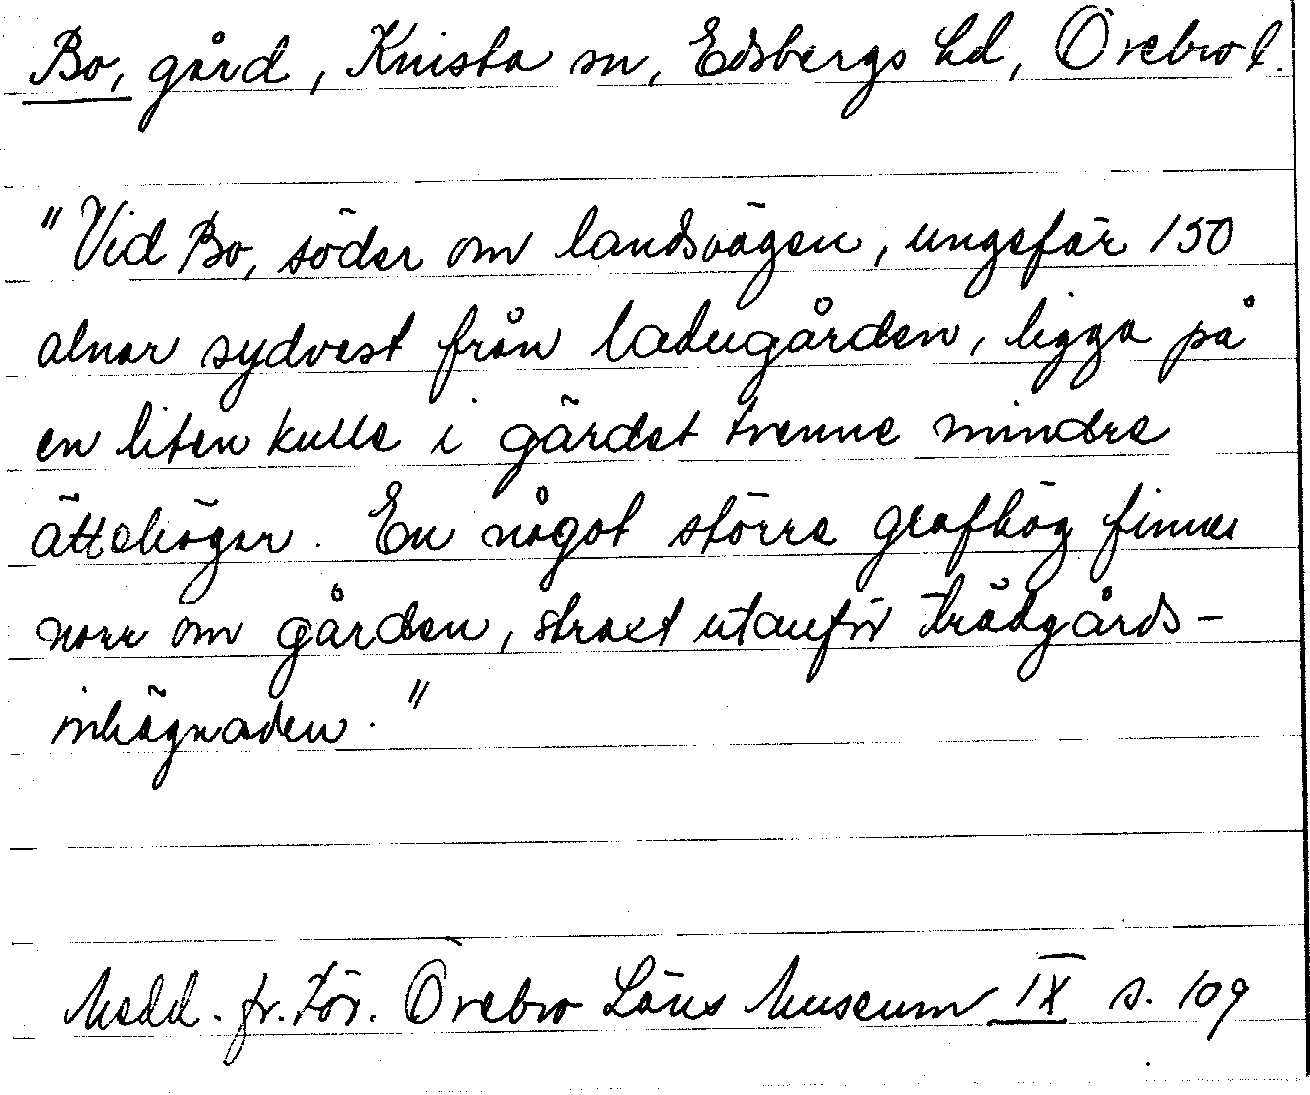 Bo, gård, Knista sn, Edsbergs hd, Örebro l.
"Vid Bo, söder om landsvägen, ungefär 150
alnar sydvest från ladugården, ligga på
en liten kulle i gärdet trenne mindre
ättehögar. En något större grafhög finnes
norr om gården, straxt utanför trädgårds-
inhägnaden."
Medd. fr. För. Örebro Läns Museum IX s. 109